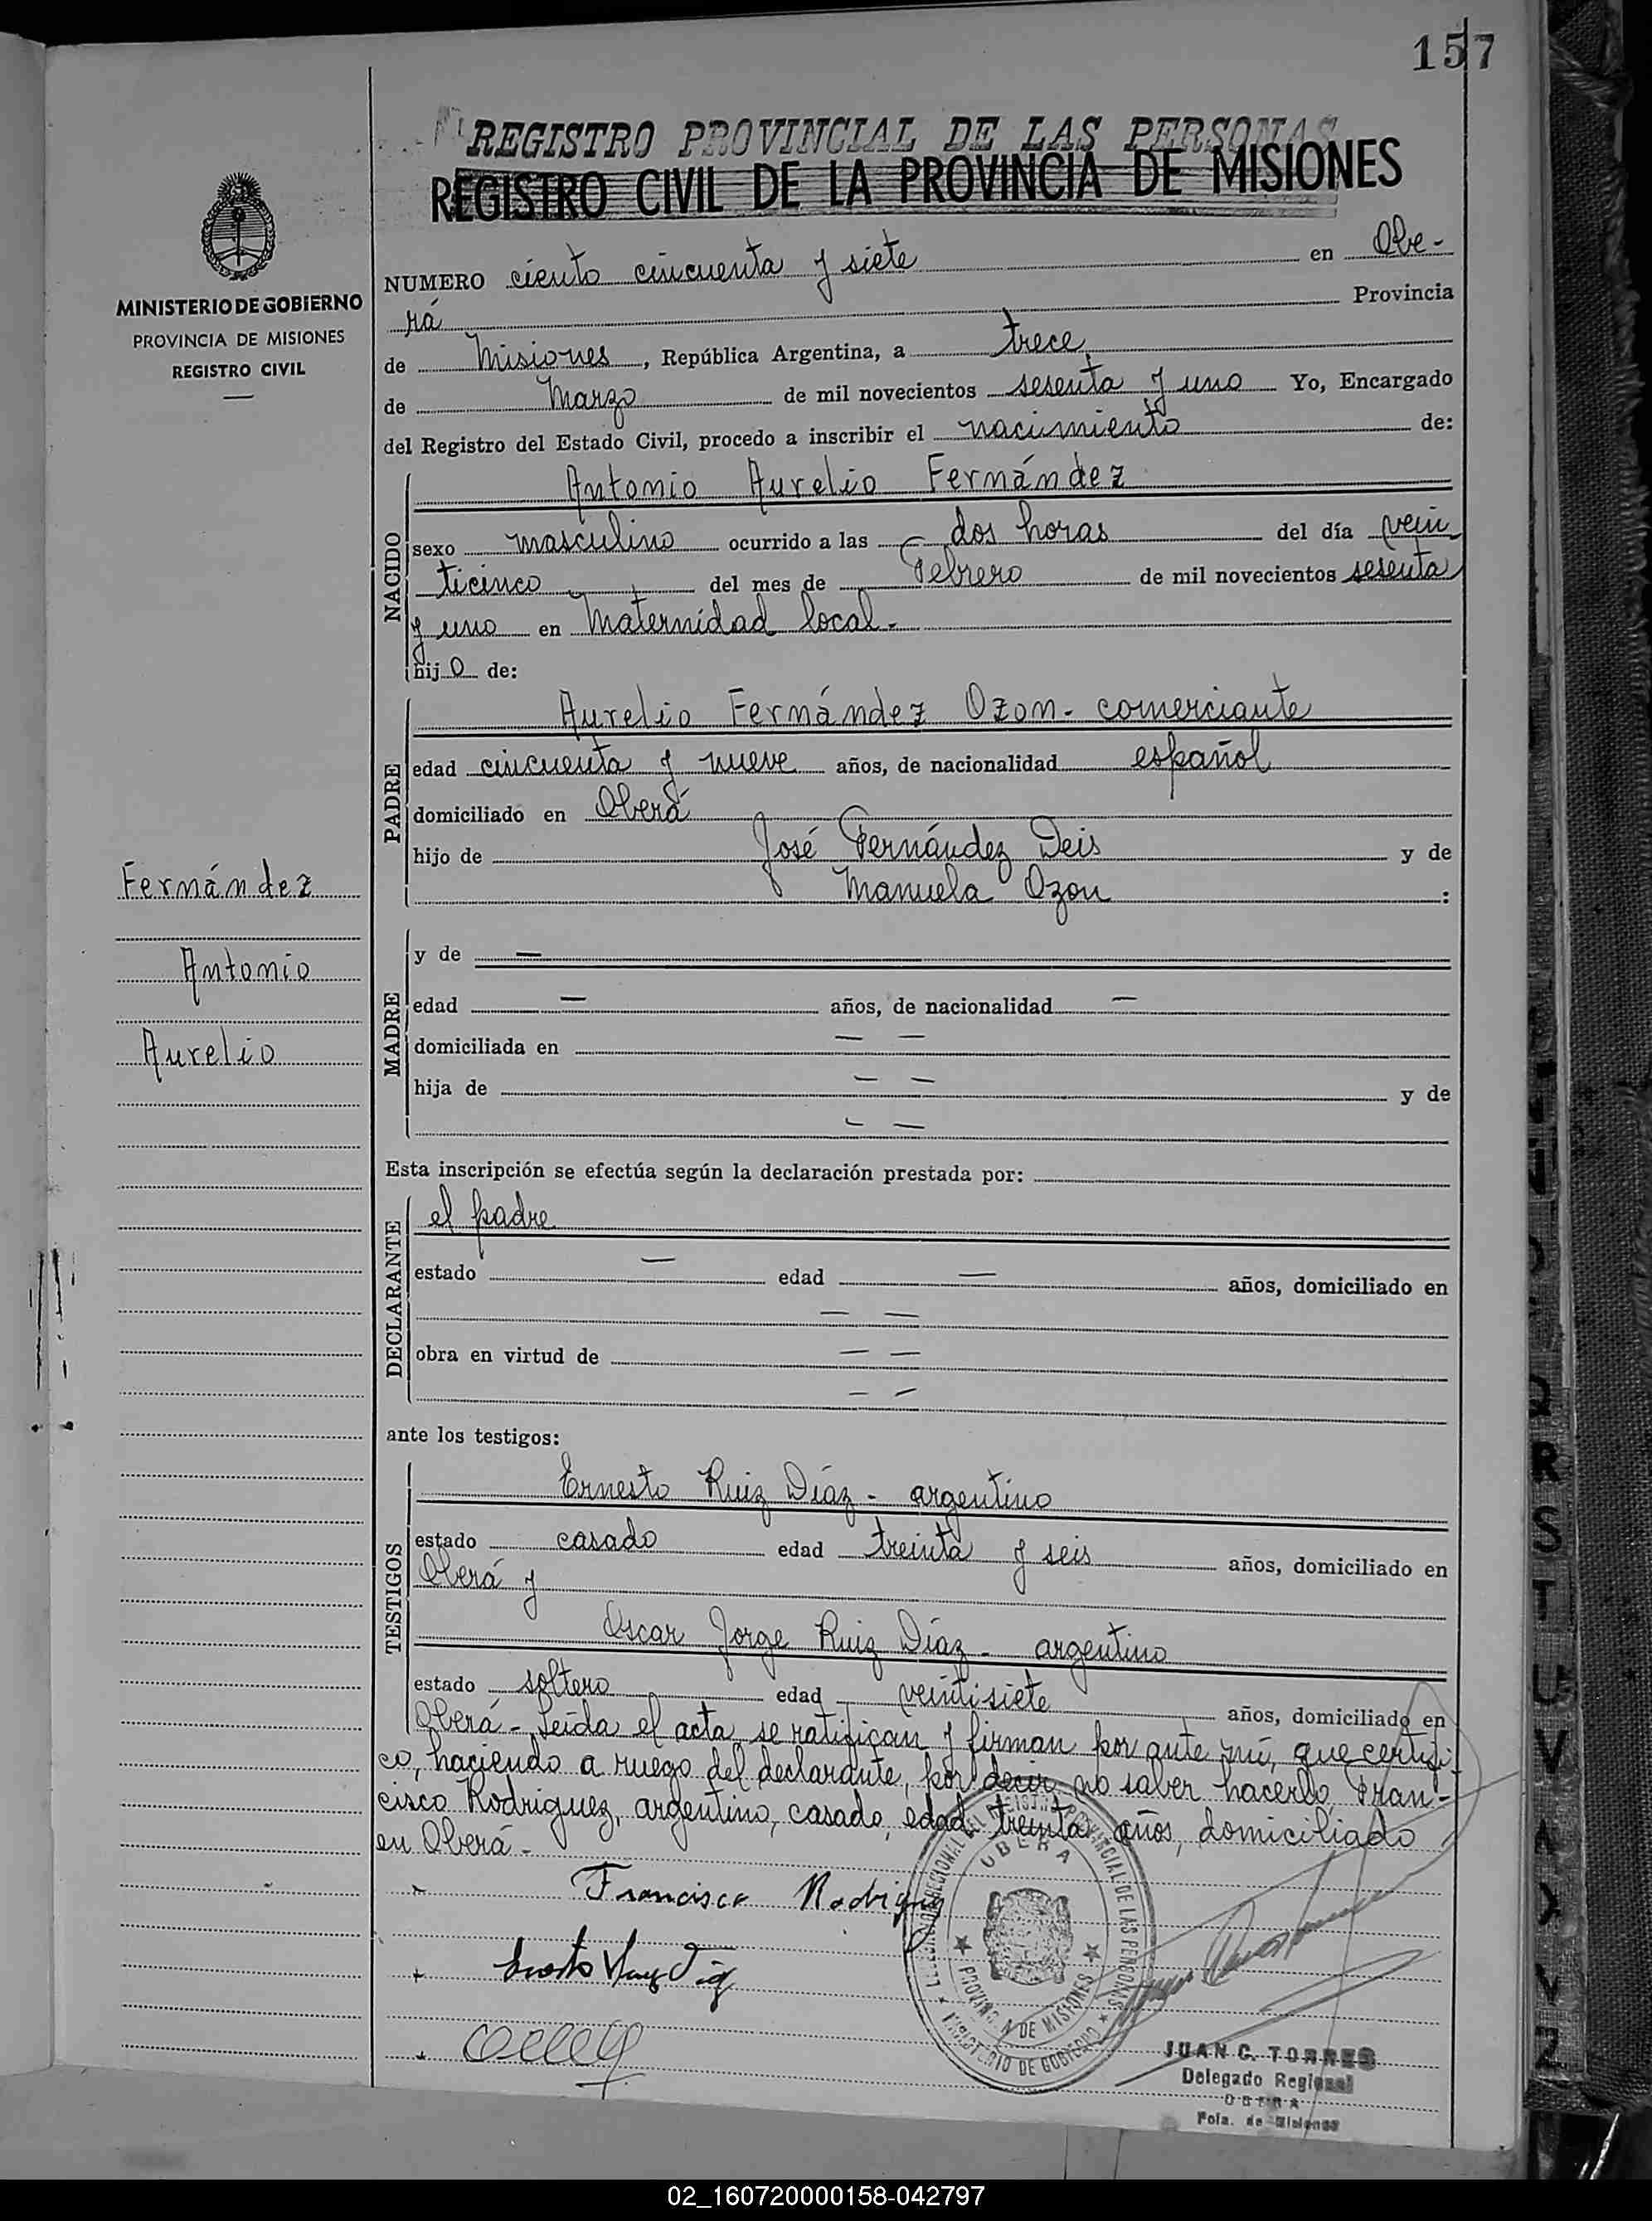 157
REGISTRO PROVINCIAL DE LAS PERSONAS
REGISTRO CIVIL DE LA PROVINCIA DE MISIONES
MINISTERIO DE GOBIERNO
PROVINCIA DE MISIONES
REGISTRO CIVIL
NUMERO ciento cincuenta y siete en Obe-
rá Provincia
de Misiones, República Argentina, a trece
de Marzo de mil novecientos sesenta y uno Yo, Encargado
del Registro del Estado Civil, procedo a inscribir el nacimiento de:
NACIDO
Antonio Aurelio Fernández
sexo masculino ocurrido a las dos horas del día vein
ticinco del mes de Febrero de mil novecientos sesenta
y uno en Maternidad local.-
hijo de:
PADRE
Aurelio Fernández Ozon - comerciante
edad cincuenta y nueve años, de nacionalidad español
domiciliado en Oberá
hijo de José Fernández Deis y de
Manuela Ozon :
Fernández
Antonio
Aurelio
MADRE
y de —
edad — años, de nacionalidad —
domiciliada en — —
hija de — — y de
— —
Esta inscripción se efectúa según la declaración prestada por:
DECLARANTE
el padre
estado — edad — años, domiciliado en
— —
obra en virtud de — —
— —
ante los testigos:
TESTIGOS
Ernesto Ruiz Díaz - argentino
estado casado edad treinta y seis años, domiciliado en
Oberá y
Oscar Jorge Ruiz Díaz - argentino
estado soltero edad veintisiete años, domiciliado en
Oberá - Leída el acta, se ratifican y firman por ante mí, que certifi
co, haciendo a ruego del declarante, por decir no saber hacerlo, Fran-
cisco Rodriguez, argentino, casado, edad treinta años, domiciliado
en Oberá -
Francisco Rodriguez
OBERA
PROVINCIA DE MISIONES
MINISTERIO DE GOBIERNO
JUAN C. TORRES
Delegado Regional
OBERA
Pcia. de Misiones
R
S
T
U
V
Y
Z
02_160720000158-042797